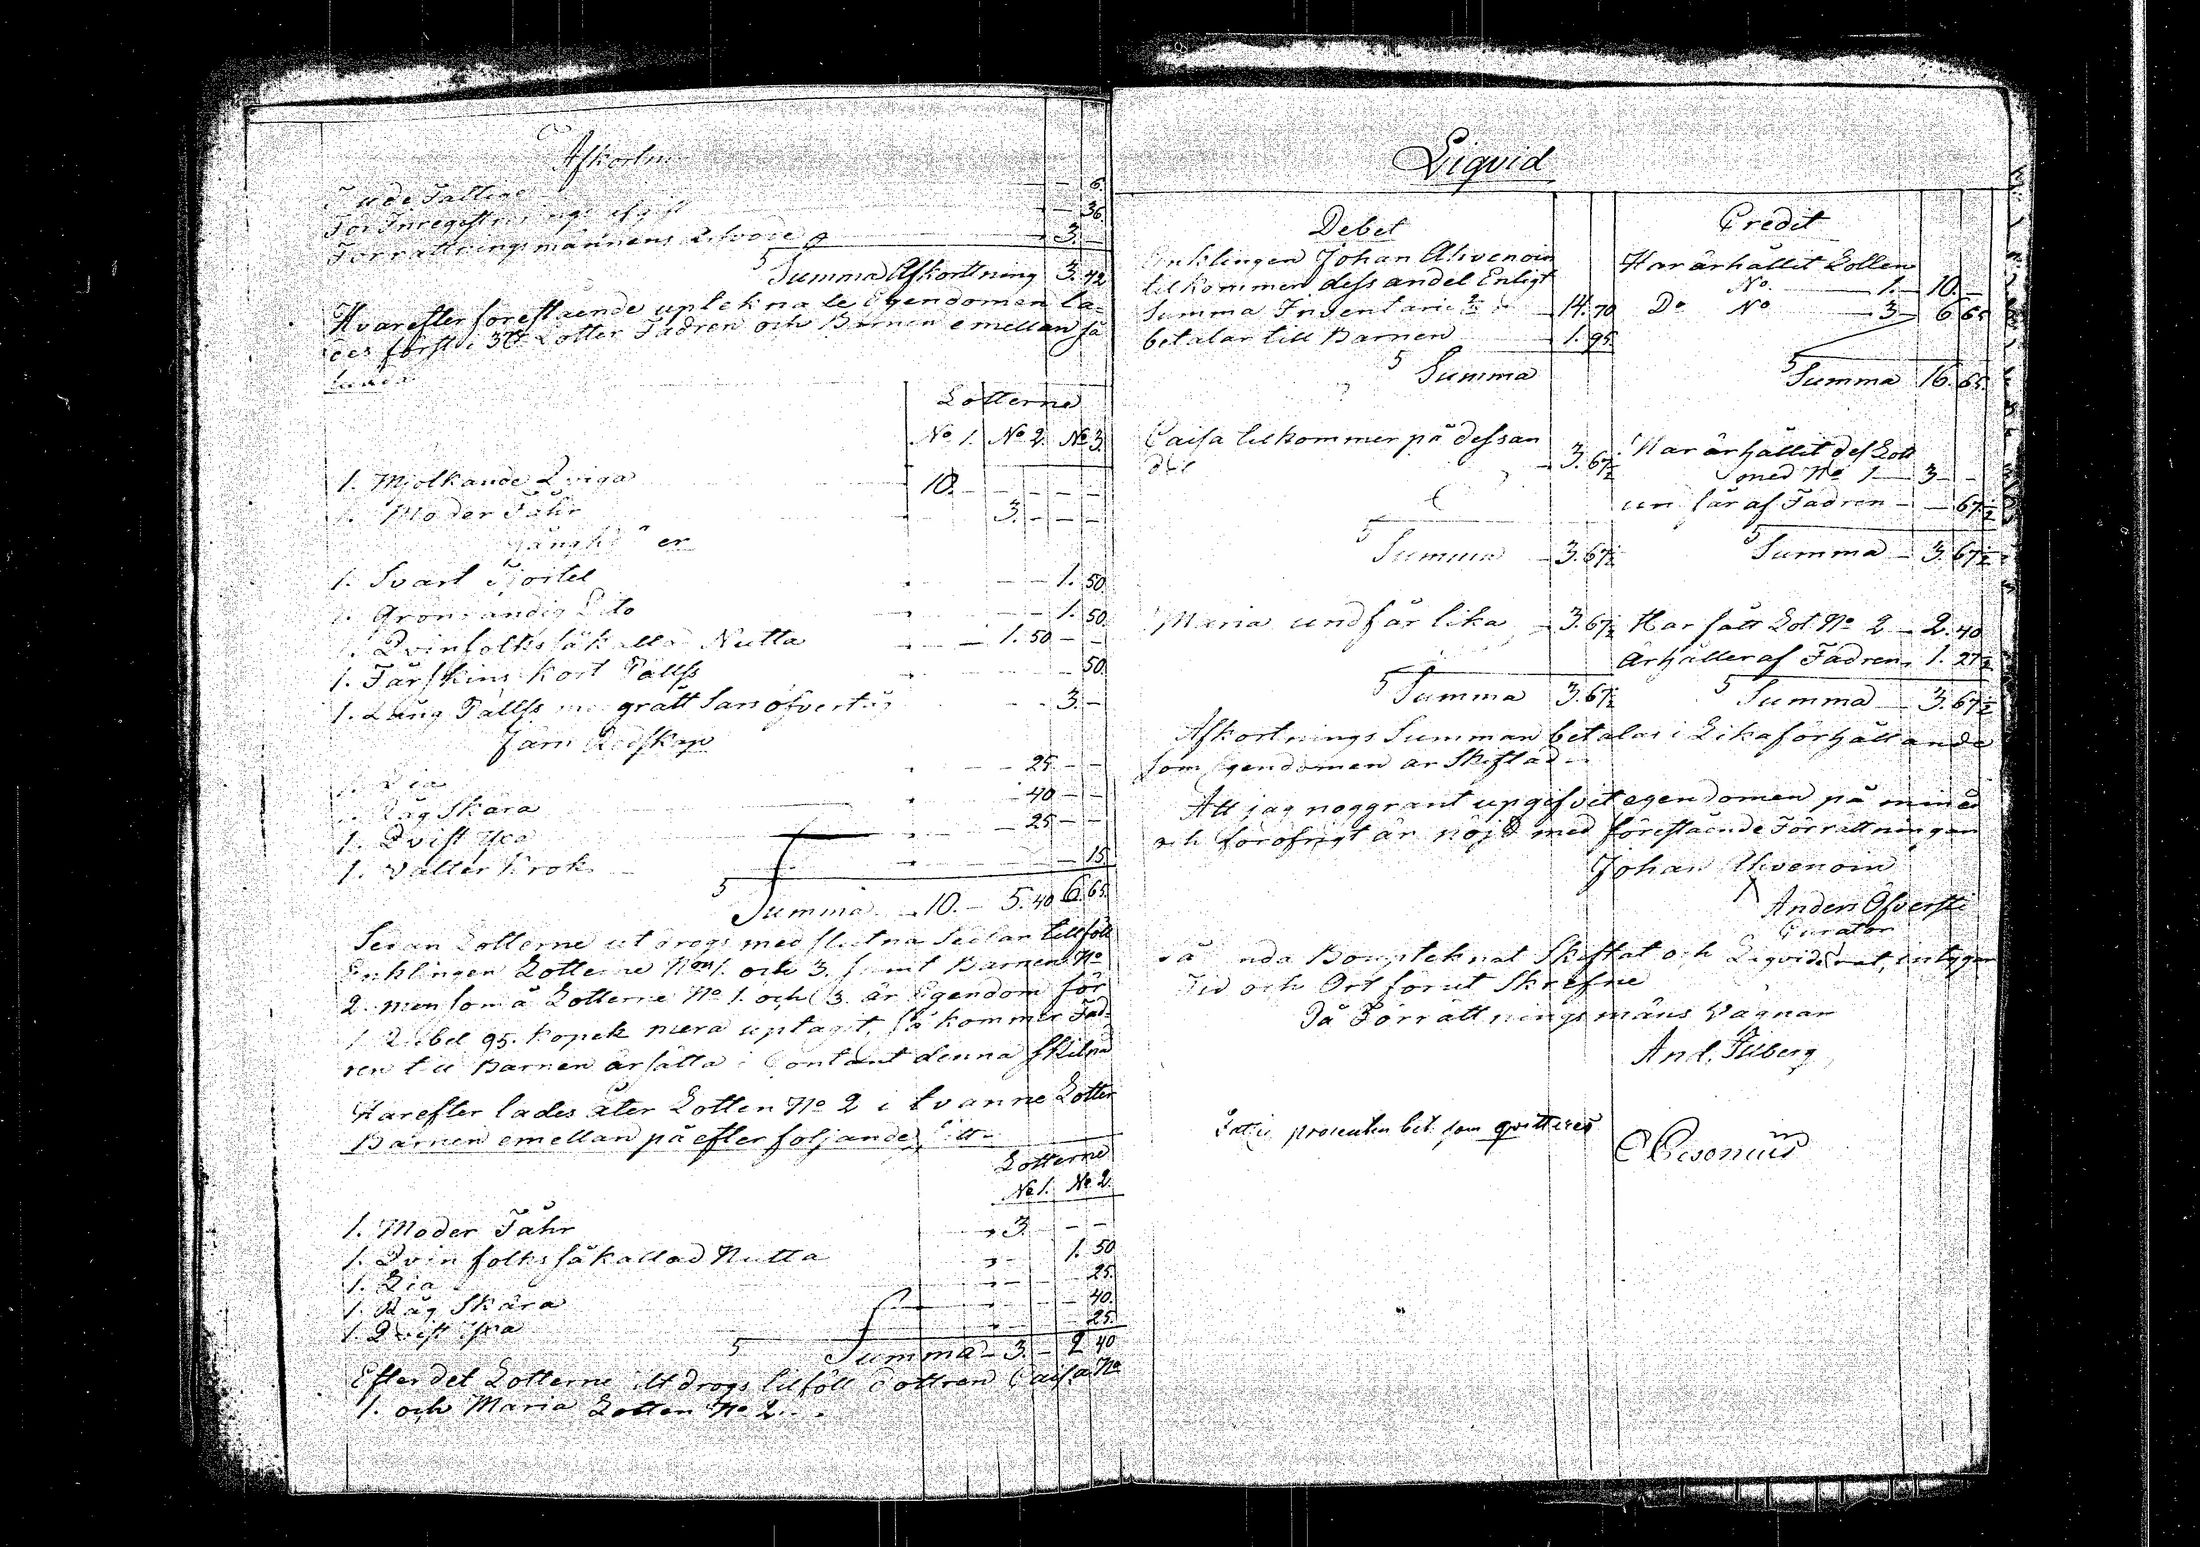 Afkortn
6.
För Inregistrerings afgift - 36.
Förrättningsmännens Arfvode 3. -
Summa Afkortning 3. 42
Hvarefter föreståénde upteknade Egendomen la-
des först i 3ne Lotter Fadren och Barnen emellan så
Lotterne
No 1. No 2. No 3.
1. Mjolkande Qviga 10. - - - - -
1. Moder Fåhr 3. - - -
er
1. Svart Kjortel 1. 50
1. Gronrandig Dito 1. 50.
1. Qvinfolks såkallad Nutta 1. 50 - -
1. Fårskins kort Pällss 50.
1. Lång Pällss med grått Lans öfvertyg 3. -
Jarn Redskap
1. Lia 25 - -
1. Råg Skära 40 - -
1. Qvist Yxa 25 - -
1. Vatter Krok 15.
Summa 10. - 5. 40 6. 65
Sedan Lotterne utdrogs med slutna Sedlar tillföll
Enklingen Lotterne Non 1. och 3. samt Barnen No
2. men som å Lotterne No 1. och 3. är Egendom för
1 Rubel 95. kopek mera uptagit, så kommer Fad-
ren til Barnen ärsätta i Contant denna skilna
Harefter lades åter Lotten No 2 i tvänne Lotter
Barnen emellan på efter foljande sätt
Lotterne
No 1. No 2.
1. Moder Fåhr 3. - -
1. Qvinfolks såkallad Nutta 1. 50
1. Lia 25.
1. Råg Skära 40.
1. Qvist Yxa 25.
Summa 3. - 2 40
Efter det Lotterne utdrogs tilföll dottren Caisa No
1. och Maria Lotten No 2.
Liqvid
Debet
Credit
Enklingen Johan Ahvenoin
tilkommer dess andel Enligt
Summa Inventarie 14. 70
betalar till Barnen 1. 95.
Summa
Har ärhållit Lotten
No 1. - 10. -
Do No 3 - 6 65
Summa 16. 65.
Caisa tilkommer på dess an
del 3. 67½
Summa 3. 67½
Har ärhållit des Lott
med No 1 - 3 -
undfår af Fadren - 67½
Summa - 3. 67½
Maria undfår lika 3. 67½
Summa 3. 67½
Har fått Lot No 2 - 2. 40
Ärhåller af Fadren 1. 27½
Summa - 3. 67½
Afkortnings Summan betalas i Lika förhållande
som Egendomen är Skiftad
Att jag noggrant upgifvit egendomen på min ed
och för öfrigt är nöjd med föreståénde Förrättningen
Johan Ahvenoin
Anders Öfversti
Curator
Så lunda Boupteknat Skiftat och Liqviderat, intygar
Tid och Ort förut Skrefne
På Förrättningsmäns Vägnar
And. Alberg
procenten bet. som qvitteras